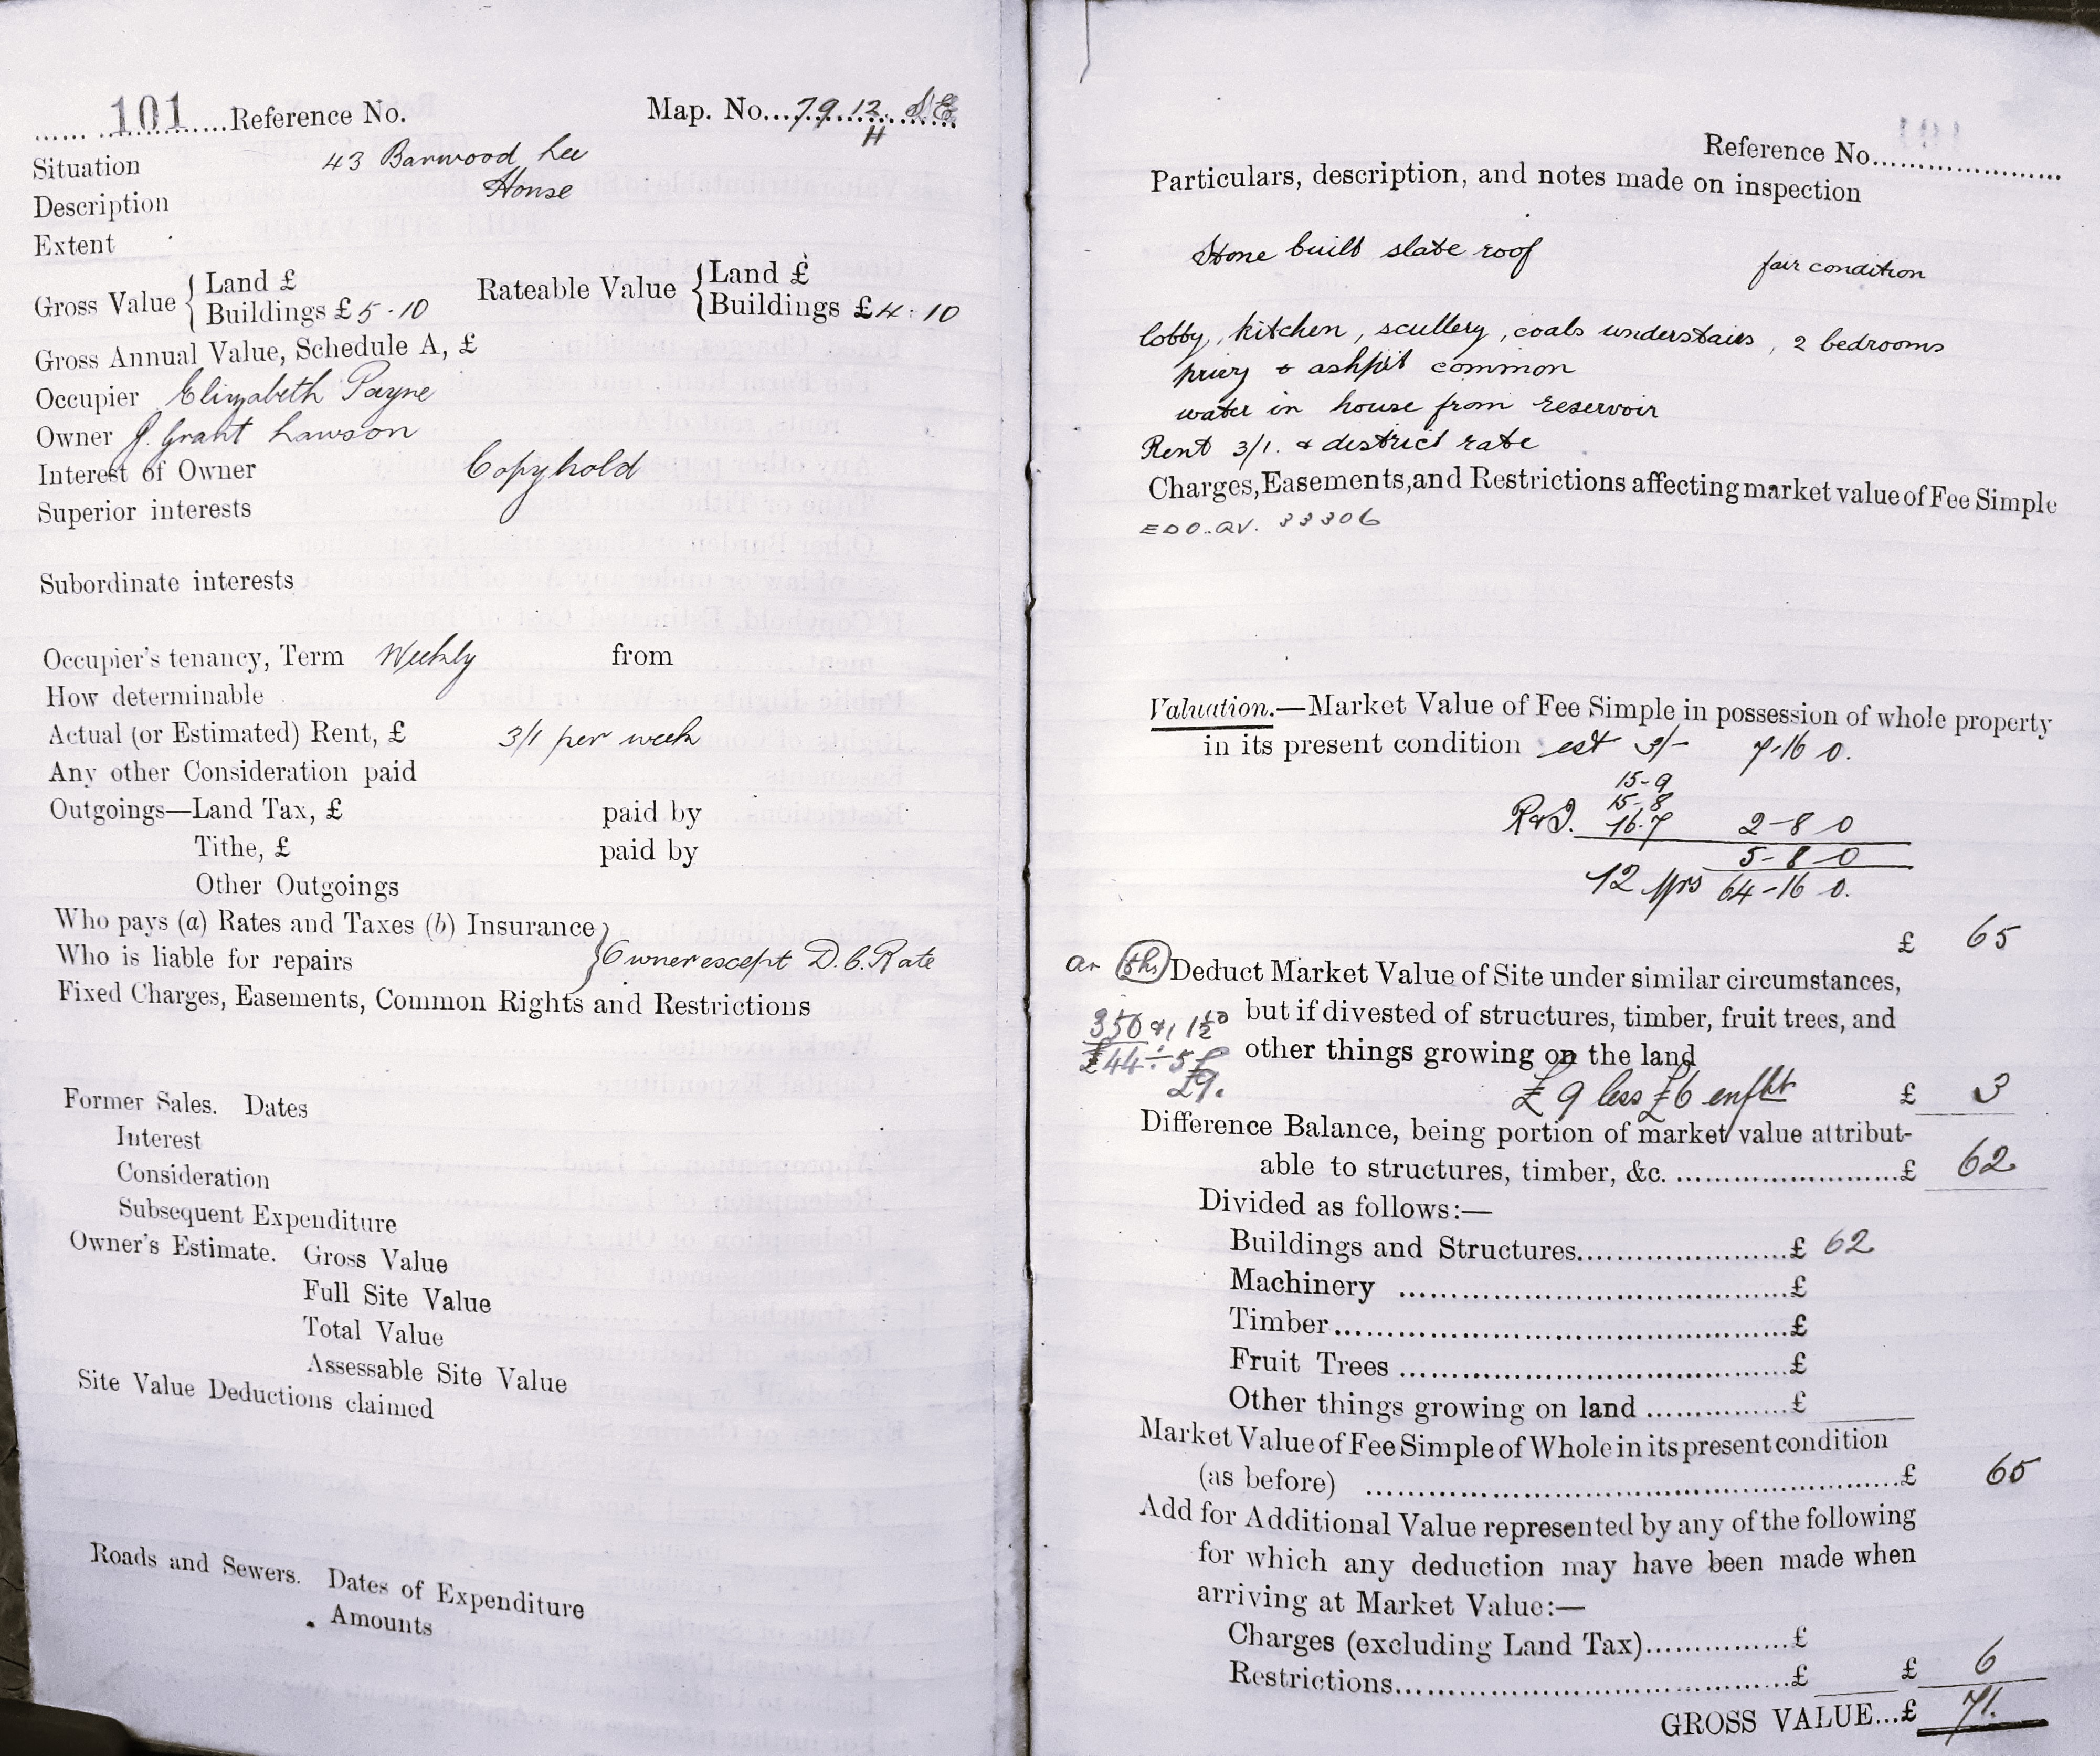 101 Reference No. Map. No. 79.12. S.E.
H
Situation 43 Barwood Lee
Description House
Extent
Gross Value { Land £
Buildings £ 5 . 10
Rateable Value { Land £
Buildings £ 4 : 10
Gross Annual Value, Schedule A, £
Occupier Elizabeth Payne
Owner J. Grant Lawson
Interest of Owner Copyhold
Superior interests
Subordinate interests
Occupier's tenancy, Term Weekly from
How determinable
Actual (or Estimated) Rent, £ 3/1 per week
Any other Consideration paid
Outgoings—Land Tax, £ paid by
Tithe, £ paid by
Other Outgoings
Who pays (a) Rates and Taxes (b) Insurance }
Who is liable for repairs } Owner except D.C. Rate
Fixed Charges, Easements, Common Rights and Restrictions
Former Sales. Dates
Interest
Consideration
Subsequent Expenditure
Owner's Estimate. Gross Value
Full Site Value
Total Value
Assessable Site Value
Site Value Deductions claimed
Roads and Sewers. Dates of Expenditure
Amounts
Reference No.....................
Particulars, description, and notes made on inspection
Stone built slate roof fair condition
lobby, kitchen, scullery, coals understairs, 2 bedrooms
privy & ashpit common
water in house from reservoir
Rent 3/1. & district rate
Charges, Easements, and Restrictions affecting market value of Fee Simple
EDO..QV. 33306
Valuation.—Market Value of Fee Simple in possession of whole property
in its present condition est 3/- 7-16 0.
15-9
15-8
R&D. 16.7 2-8 0
5-8-0
12 yrs 64-16 0.
£ 65
Deduct Market Value of Site under similar circumstances,
but if divested of structures, timber, fruit trees, and
other things growing on the land
350
£44 ÷ 5
£9.
£9 less £6 enfht £ 3
Difference Balance, being portion of market value attribut-
able to structures, timber, &c. ..........................£ 62
Divided as follows:—
Buildings and Structures........................£ 62
Machinery ............................................£
Timber...................................................£
Fruit Trees ............................................£
Other things growing on land ................£
Market Value of Fee Simple of Whole in its present condition
(as before) ..............................................................£ 65
Add for Additional Value represented by any of the following
for which any deduction may have been made when
arriving at Market Value:—
Charges (excluding Land Tax)................£
Restrictions............................................£ £ 6
GROSS VALUE...£ 71.